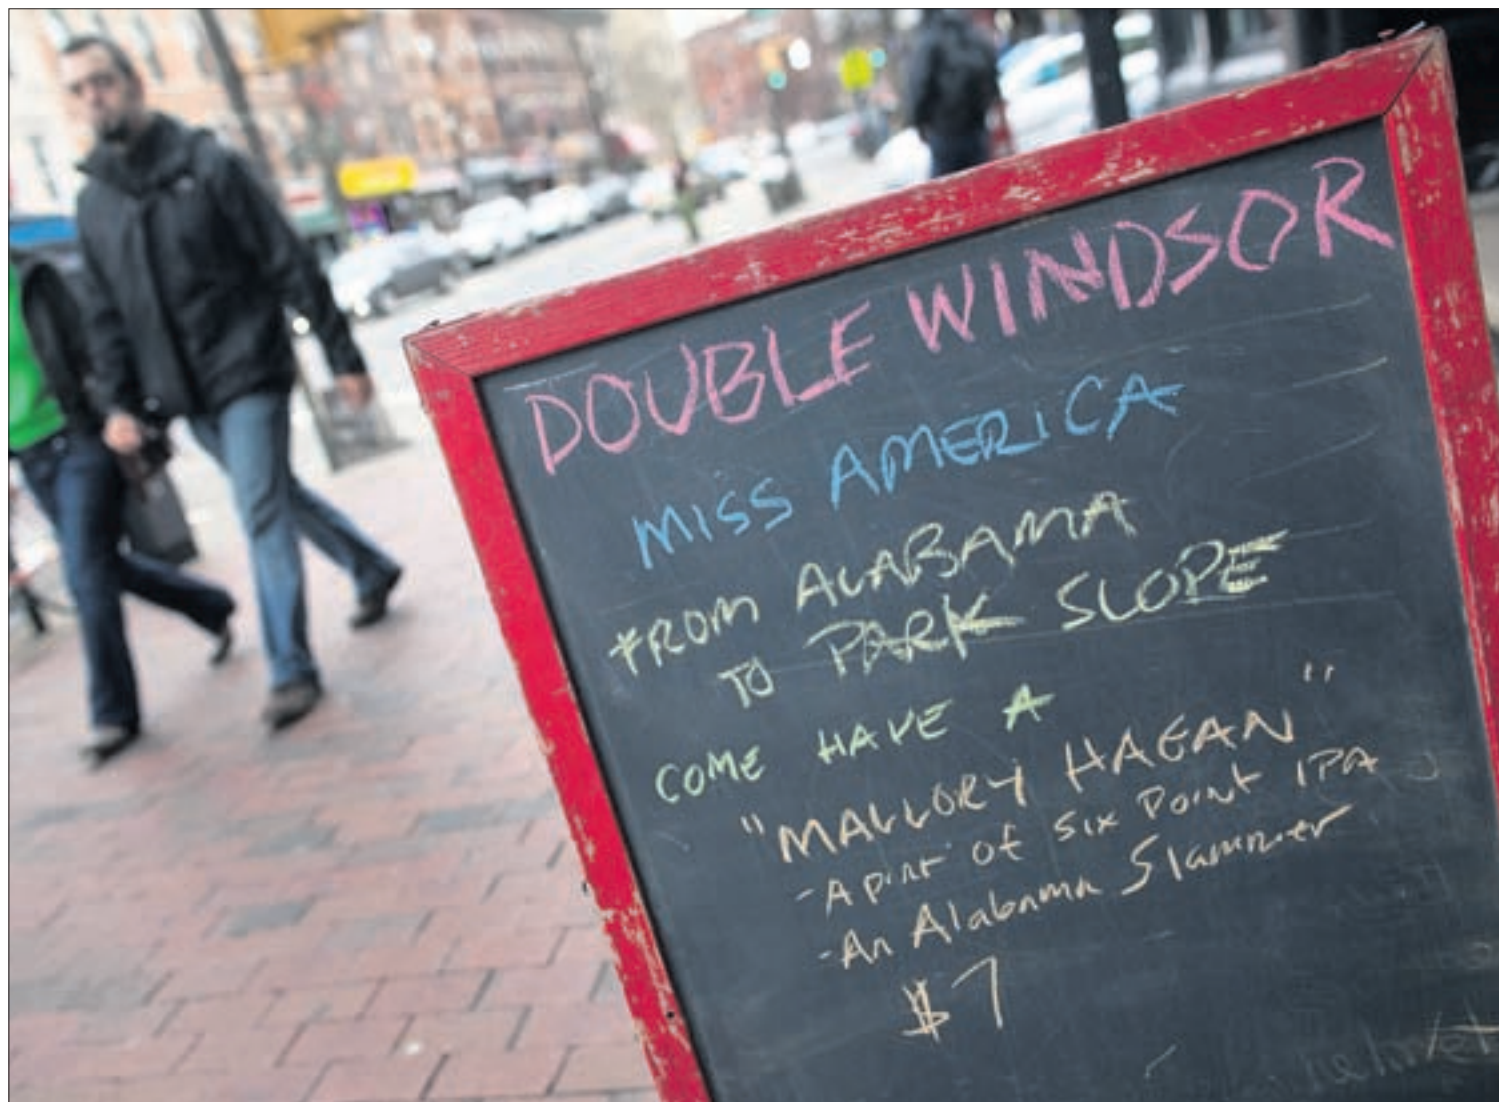 DOUBLE WINDSOR
MISS AMERICA
FROM ALABAMA
TO PARK SLOPE
COME HAVE A
"MALLORY HAGAN"
- A pint of Six Point IPA
- An Alabama Slammer
$7